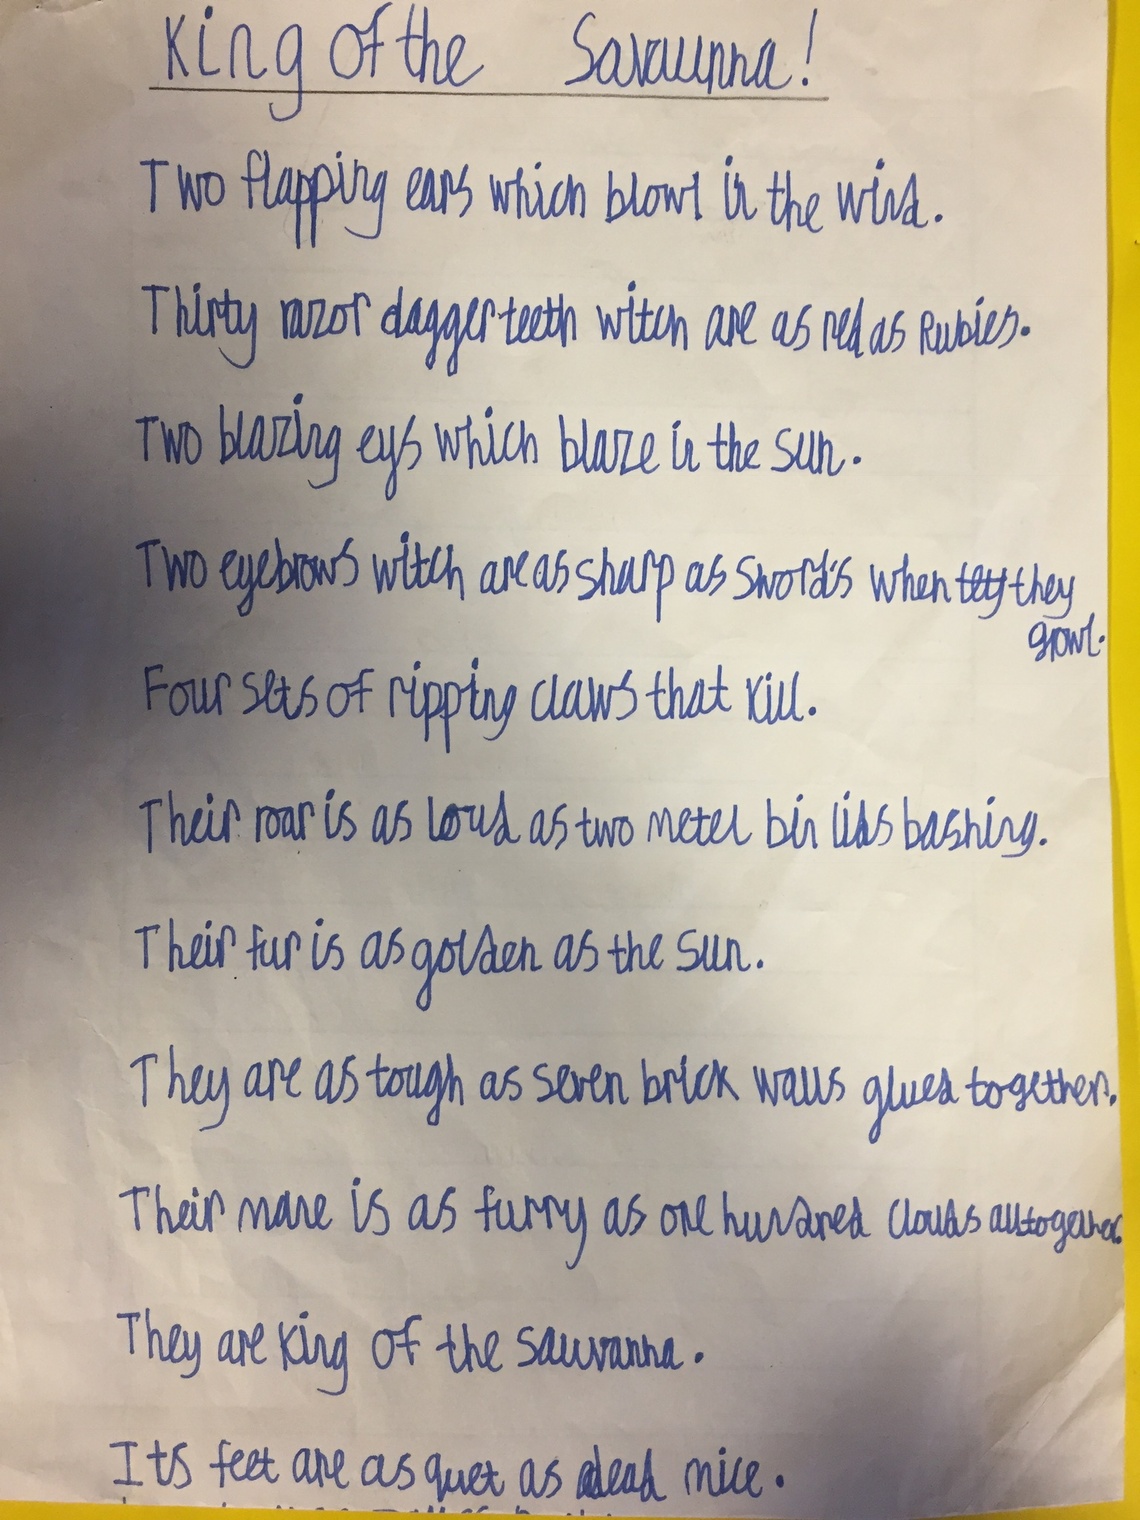 King of the Savaunna!
Two flapping ears which blowl in the wind.
Thirty razor dagger teeth witch are as red as Rubies.
Two blazing eys which blaze in the sun.
Two eyebrows witch are as sharp as Sword's when they
growl.
Four sets of ripping claws that kill.
Their roar is as loud as two metel bin lids bashing.
Their fur is as golden as the sun.
They are as tough as seven brick walls glued together.
Their mane is as furry as one hundred clouds alltogether.
They are King of the sauvanna.
Its feet are as quet as dead mice.